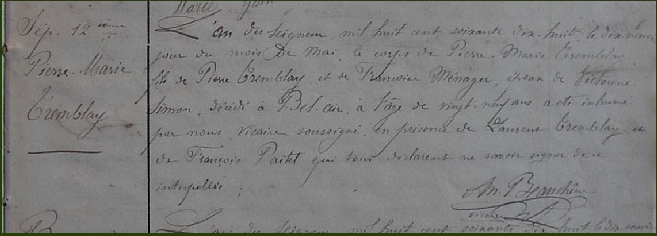 Sép. 12ème
Pierre-Marie
Tremblay
L'an du Seigneur, mil huit cent soixante dix-huit le dix-neuf
jour du mois De Mai, le corps de Pierre-Marie Tremblay
fils de Pierre Tremblay, et de Françoise Ménager, époux de Victorine
Simon, décédé à Bel air, à l'âge de vingt-neuf ans, a été inhumé
par nous, vicaire soussigné, en présence de Laurent Tremblay et
de François Paitet qui tous déclarent ne savoir signer de ce
interpellés.
Am. Beauchêne
vicaire
L'an du Seigneur, mil huit cent soixante dix huit le dix-neuf